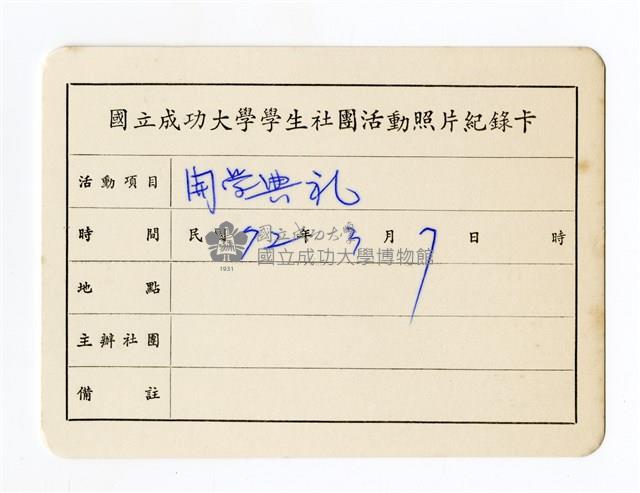 國立成功大學學生社團活動照片紀錄卡
活動項目 開学典礼
時間 民國 72 年 3 月 7 日 時
地點
主辦社團
備註
國立成功大學
國立成功大學博物館
1931